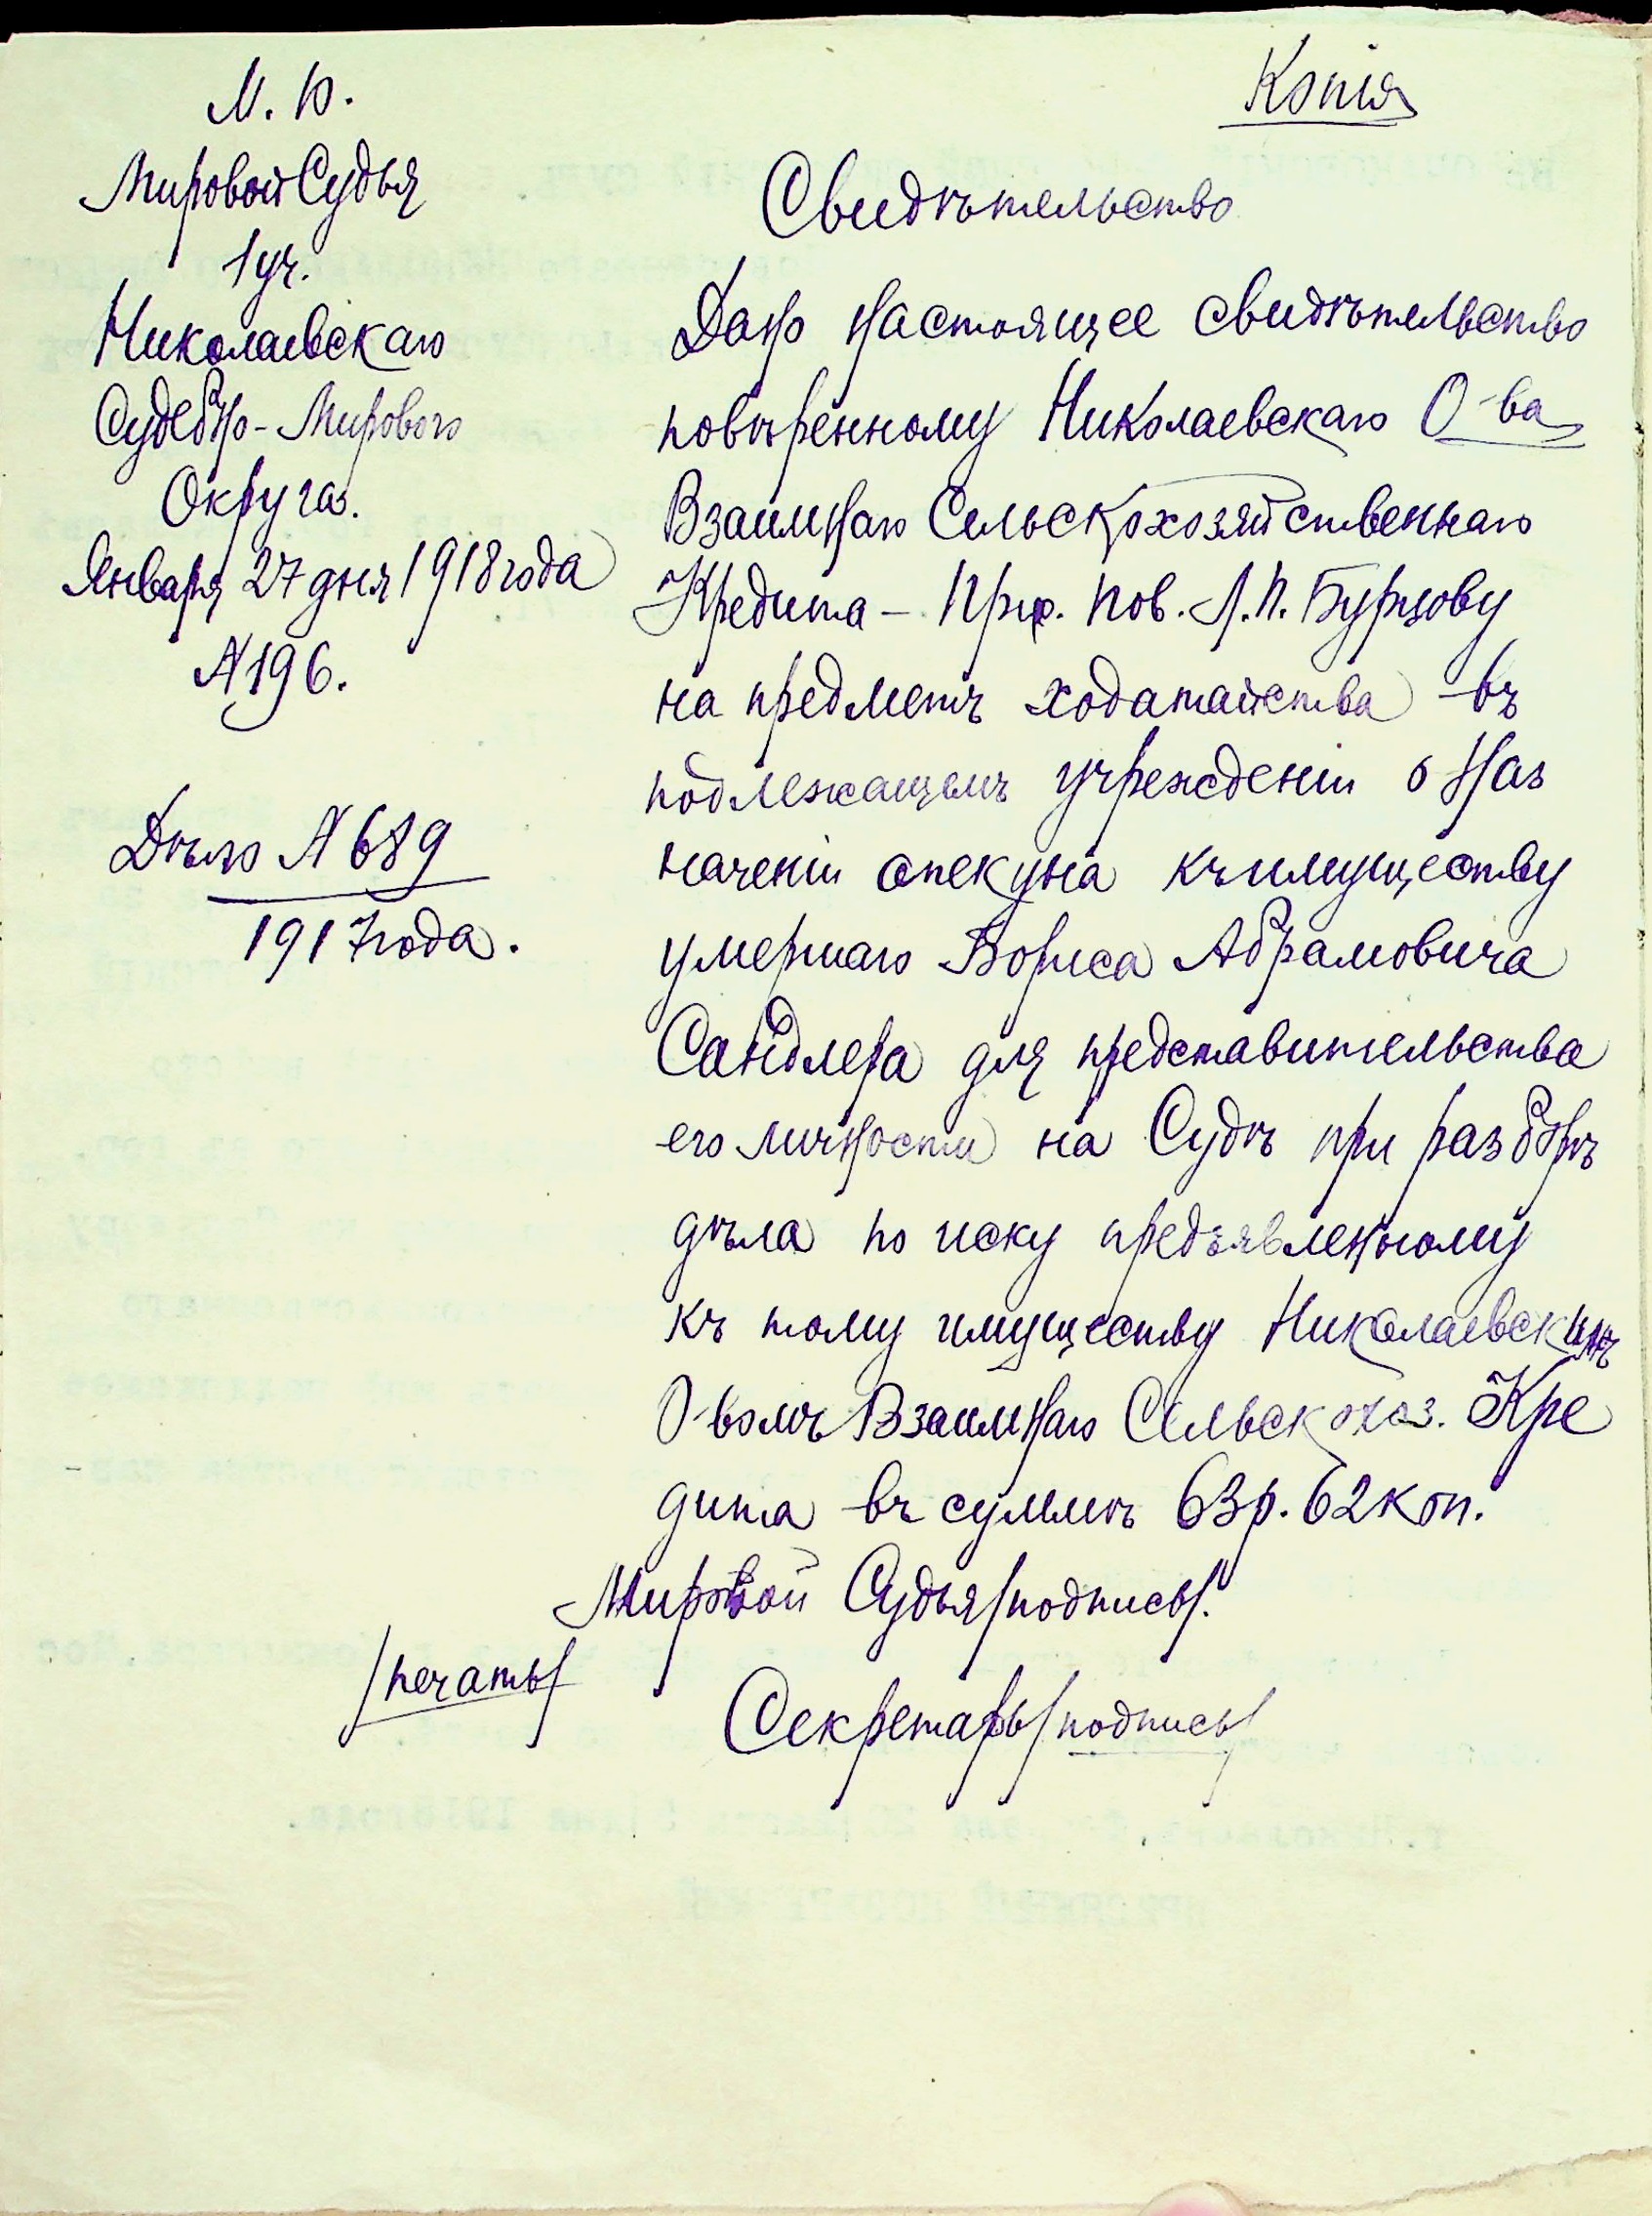 Копія
М. Ю.
Мировой Судья
1 уч.
Николаевскаго
Судебно-Мирового
Округа.
Января 27 дня 1918 года
№ 196.
Дѣло № 689
1917 года.
Свидѣтельство
Дано настоящее свидѣтельство
повѣренному Николаевскаго О-ва
Взаимнаго Сельскохозяйственнаго
Кредита – Прис. Пов. Л. П. Бурцову
на предметъ ходатайства въ
подлежащемъ учрежденіи о наз
наченіи опекуна къ имуществу
умершаго Бориса Абрамовича
Сандлера для представительства
его личности на Судѣ при разборѣ
дѣла по иску предъявленному
къ тому имуществу Николаевскимъ
О-вомъ Взаимнаго Сельскохоз. Кре
дита въ суммѣ 63 р. 62 коп.
Мировой Судья /подпись/.
/печать/
Секретарь /подпись/